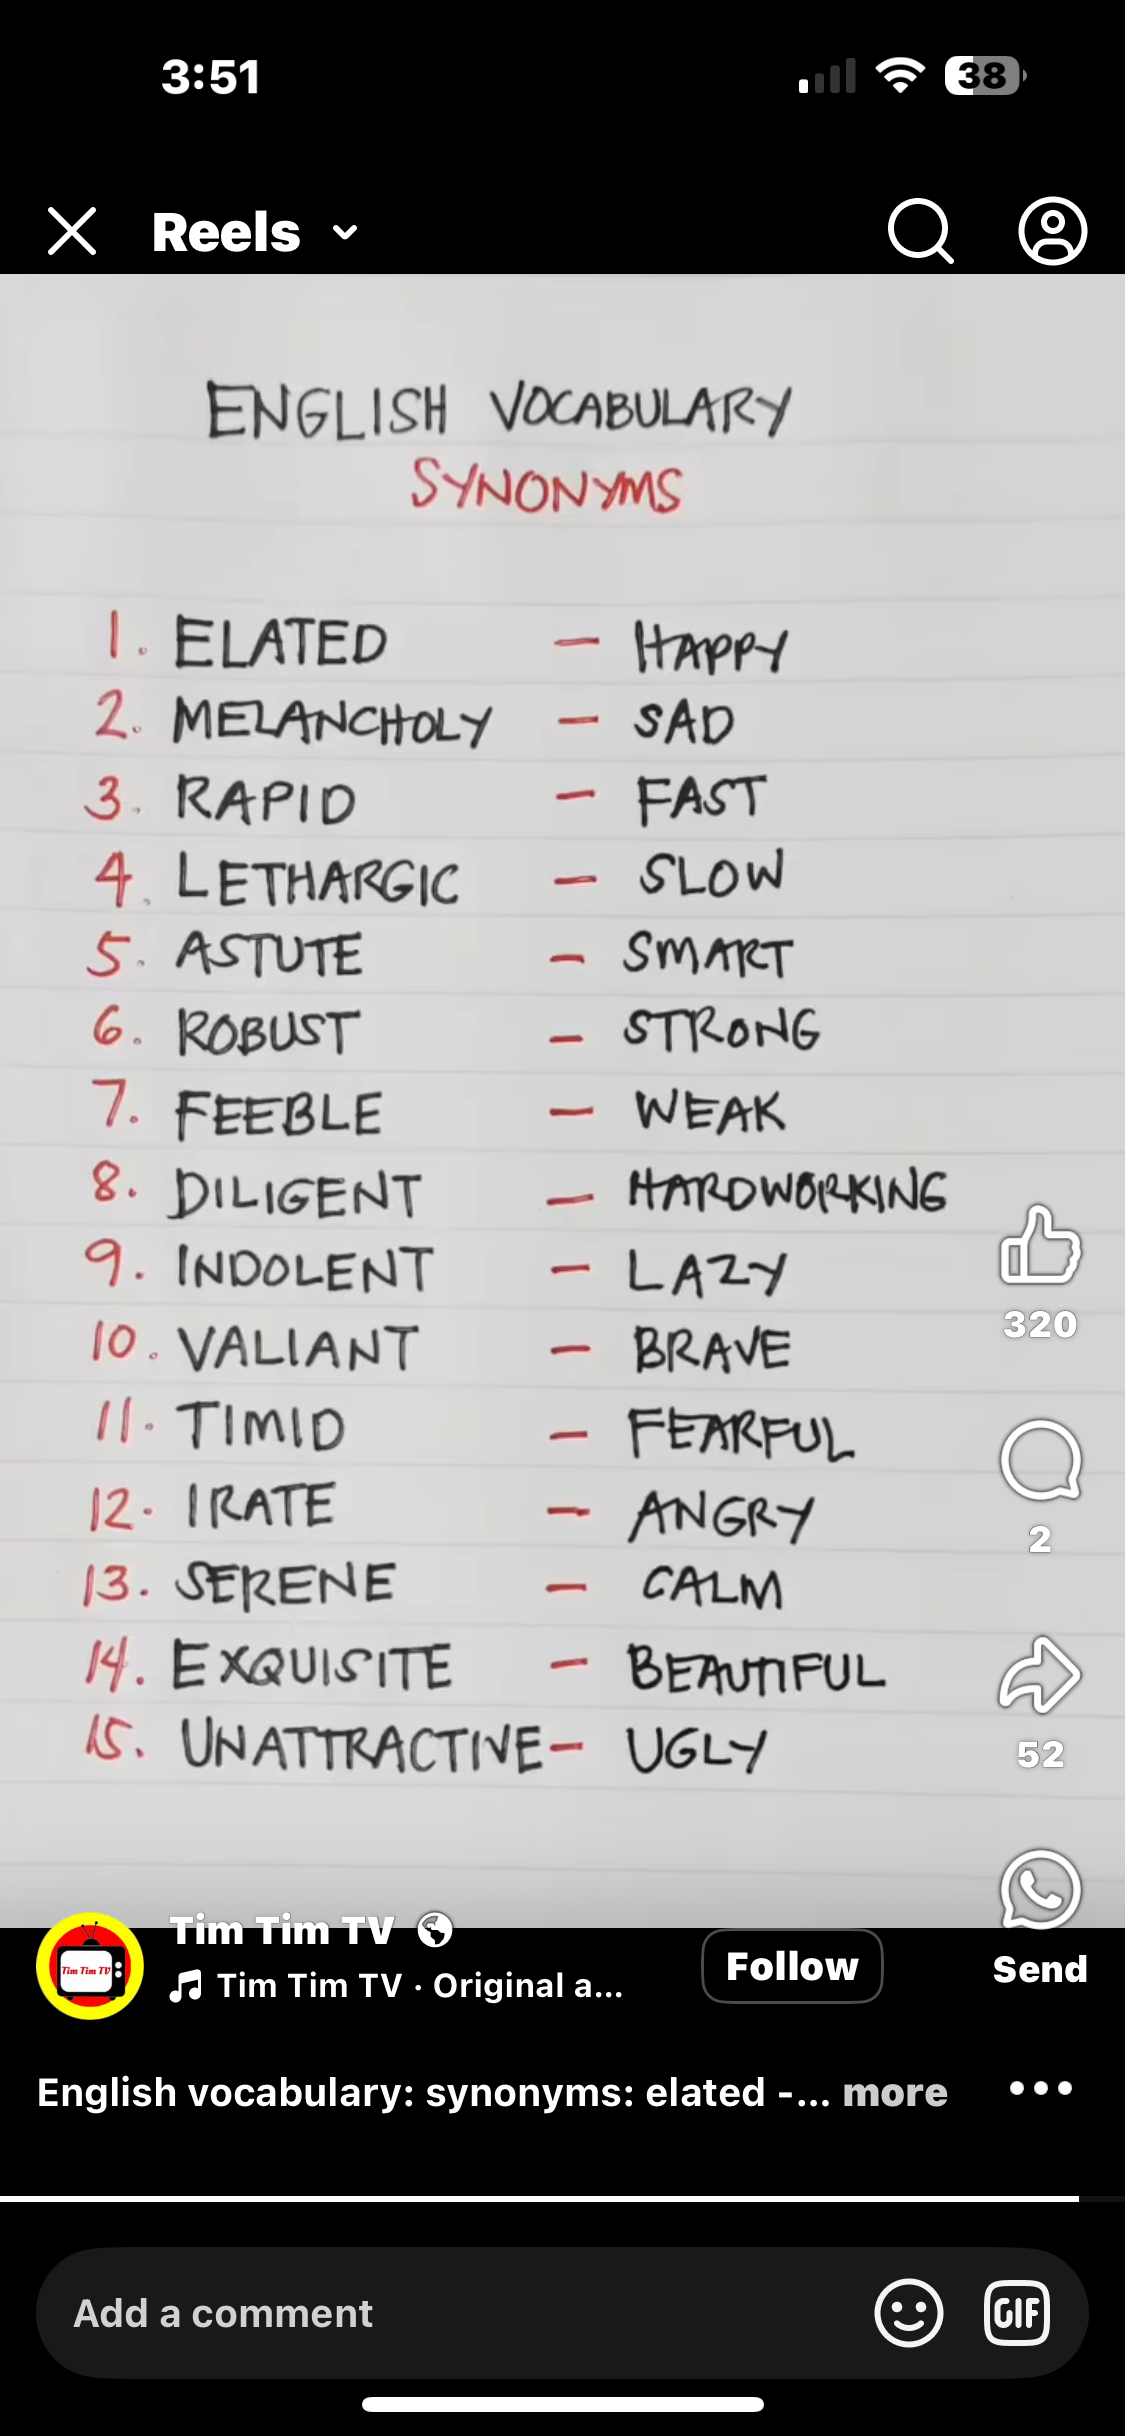 3:51
38
Reels
ENGLISH VOCABULARY
SYNONYMS
1. ELATED - HAPPY
2. MELANCHOLY - SAD
3. RAPID - FAST
4. LETHARGIC - SLOW
5. ASTUTE - SMART
6. ROBUST - STRONG
7. FEEBLE - WEAK
8. DILIGENT - HARDWORKING
9. INDOLENT - LAZY
10. VALIANT - BRAVE
11. TIMID - FEARFUL
12. IRATE - ANGRY
13. SERENE - CALM
14. EXQUISITE - BEAUTIFUL
15. UNATTRACTIVE - UGLY
320
2
52
Send
Tim Tim TV
Tim Tim TV
Tim Tim TV · Original a...
Follow
English vocabulary: synonyms: elated -... more
Add a comment
GIF